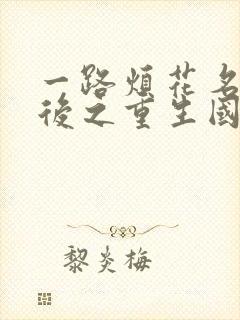 一路煩花名
後之重生國
黎炎梅